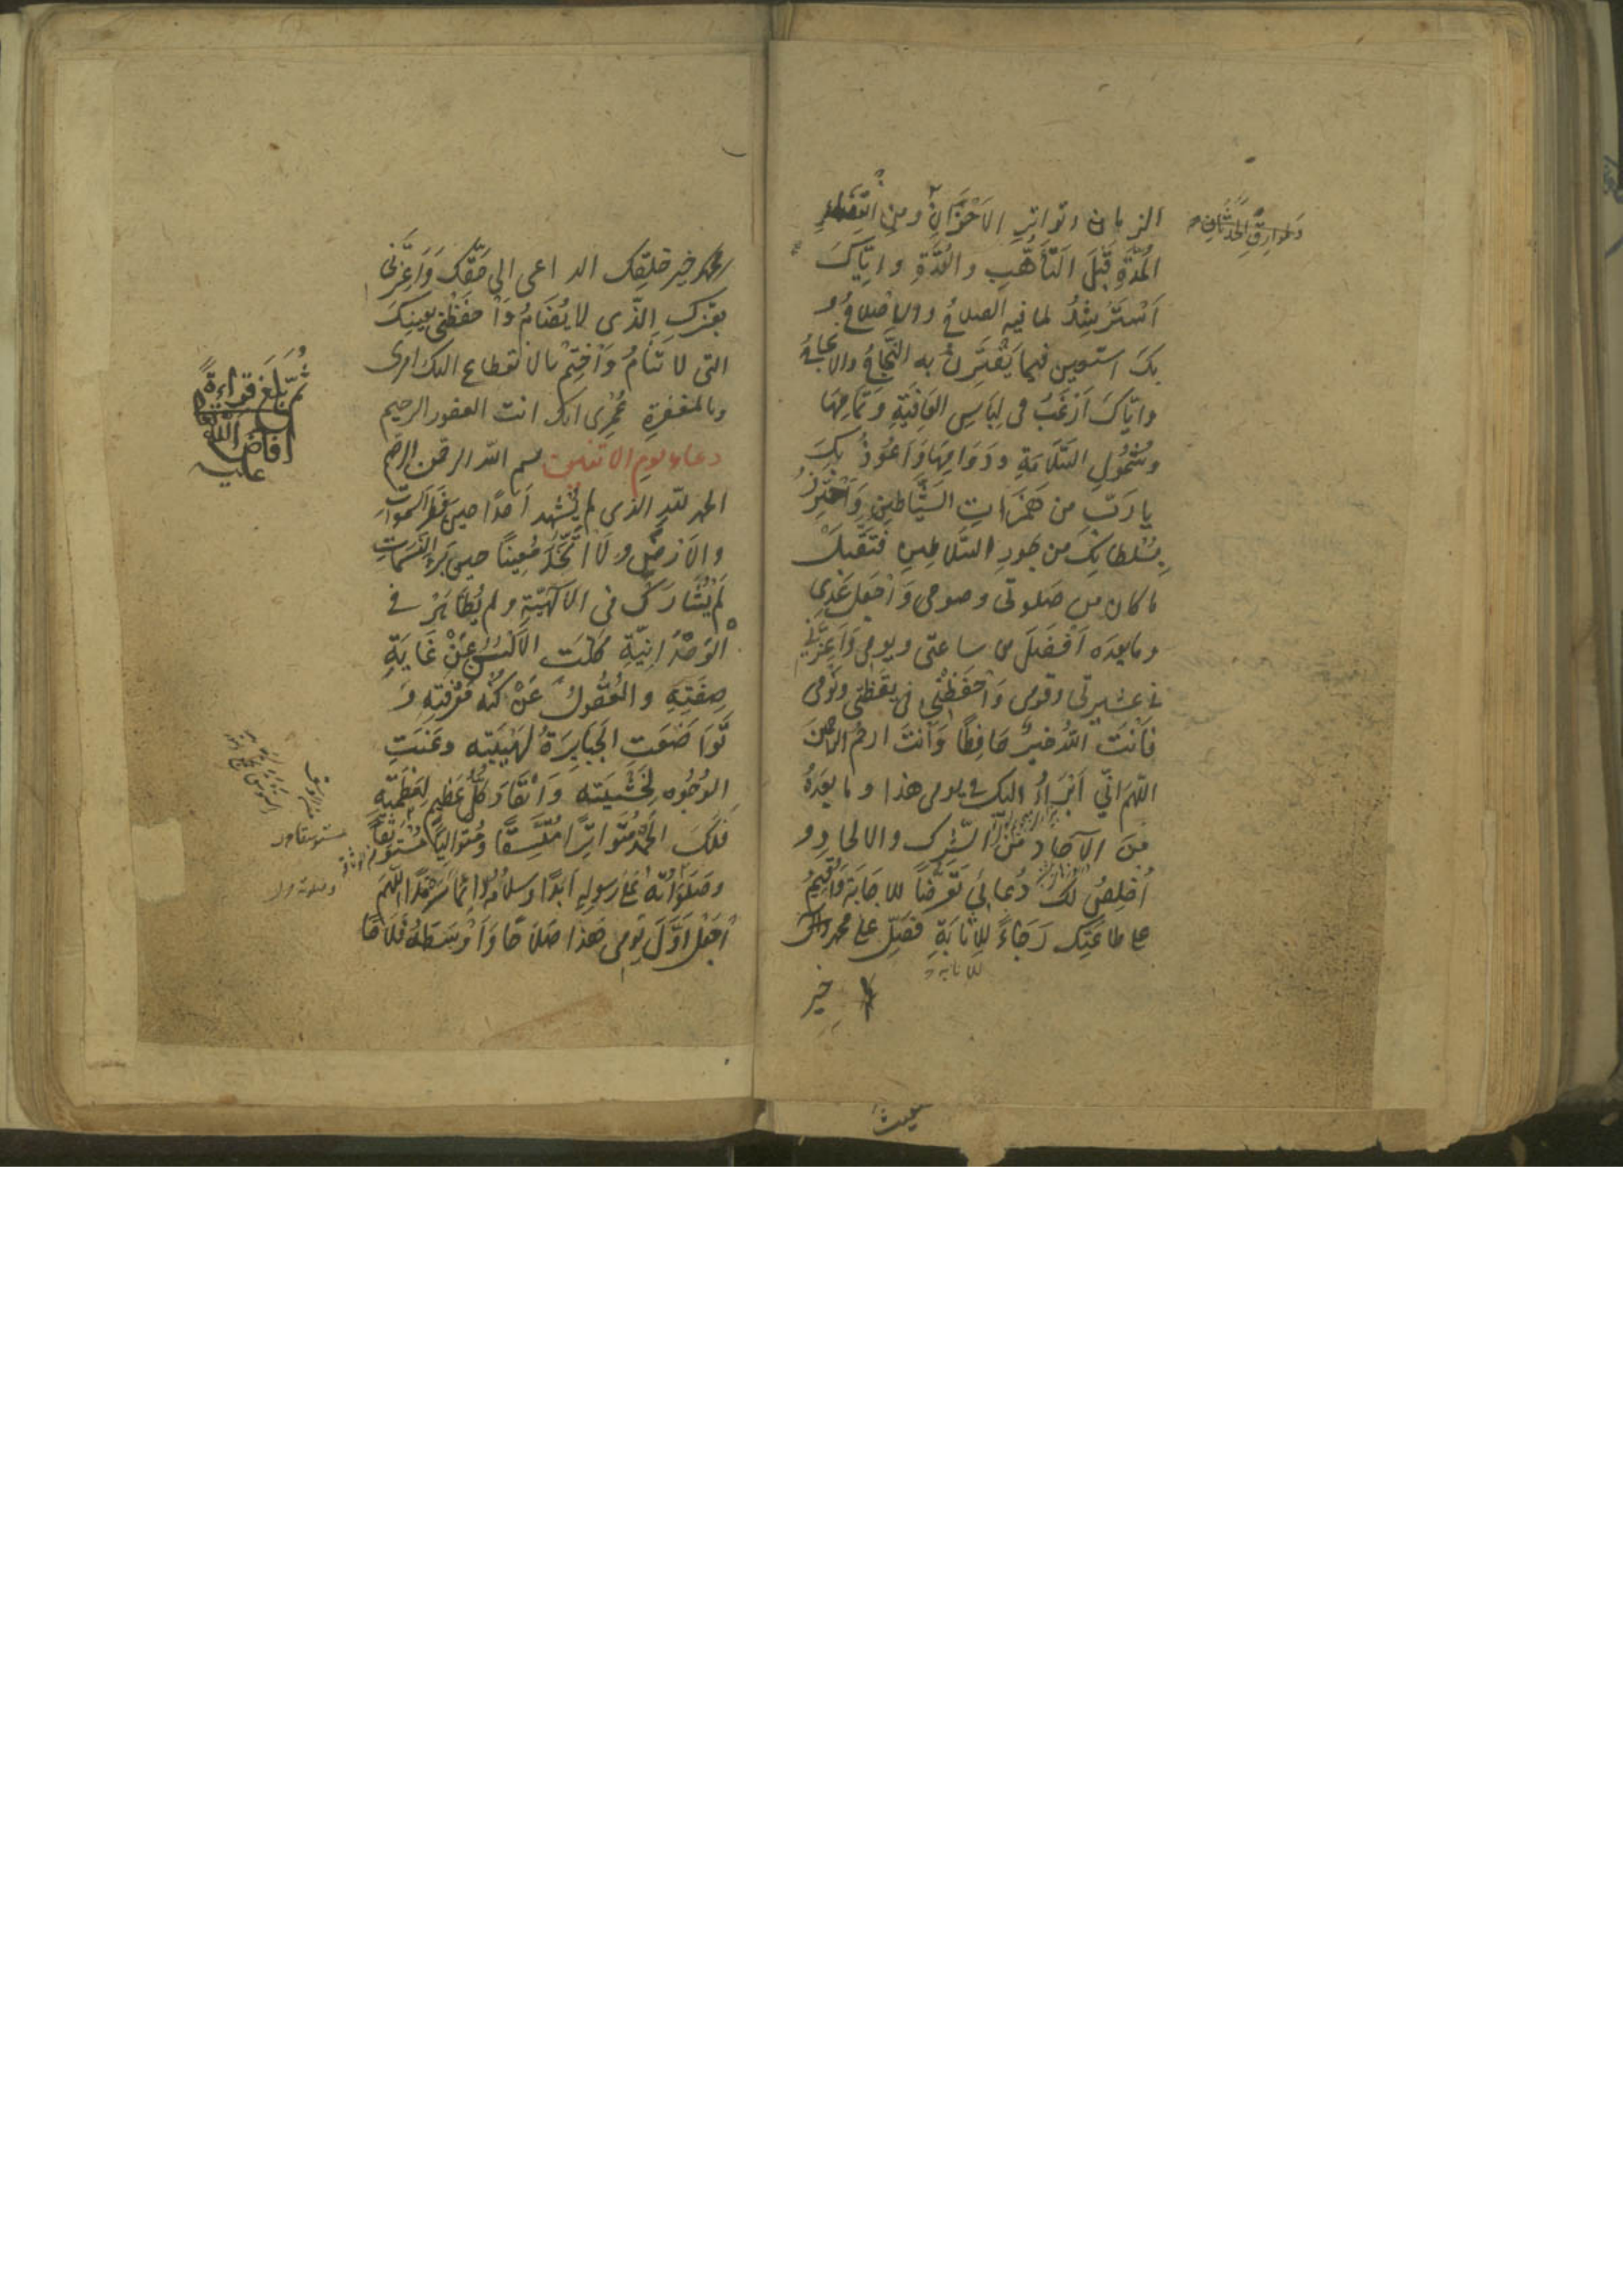 الزمان وتواتر الاَحْزَانِ ومِن انقضاءِ
وَطَوارِقِ الحَدَثَانِ
المُدَّةِ قَبْلَ التَّأَهُّبِ والعُدَّةِ وايّاكَ
اَسْتَرْشِدُ لما فيه الصلاحُ والاِصْلاحُ و
بِكَ استعين فيما يَقْتَرِنُ به النَّجَاحُ والانجاحُ
وايّاكَ اَرْغَبُ فى لِبَاسِ العَافِيَةِ وتَمَامِهَا
وشُمُولِ السَّلَامَةِ ودَوَامِهَا وَاَعُوذُ بِكَ
يا رَبِّ من هَمَزَاتِ الشَّيَاطينِ وَاَحْتَرِزُ
بِسُلطانِكَ من جَورِ السَّلاطينِ فَتَقَبَّلْ
ما كان مِن صَلوتى وصومى وَاجْعَل غَدِى
وما بعدَه اَفضَلَ من ساعتى ويومى وَاَعِزَّنِى
فى عشيرتى وقومى وَاحْفَظْنِى فى يَقْظَتى ونَومى
فَاَنْتَ اللّهُ خيرٌ حَافِظًا وَاَنْتَ ارحم الراحمينَ
اللّهم انّى اَبْرَاُ اليك فى يومى هذا وما بعدَهُ
مِنَ الآحَادِ مِنَ الشِّرك والالحادِ و
اُخْلِصُ لَكَ دُعائى تَعَرُّضًا للاجَابَةِ وَاُقِيمُ
على طاعَتِك رَجَاءً لِلاِثَابَةِ فَصَلِّ على محمد وآله
للانابة
خير
محمّد خيرِ خلقِك الداعى الى حَقِّكَ وَاَعِزَّنى
بعِزِّك الذّى لا يُضَامُ وَاحفَظْنى بعينِكَ
التى لا تَنَامُ وَاخْتِمْ بالانقطاع اليك امرى
وبالمغفرةِ عُمْرِى انك انت الغفور الرحيم
ثُمَّ بَلَغَ قراءةً
اَفاضَ اللّه
عليه
دعاء يوم الاثنين بسم اللّه الرحمن الرحيم
الحمد للّهِ الذى لم يُشْهِد اَحَدًا حين فَطَرَ السَّمواتِ
والاَرْضَ ولَا اتَّخَذَ مُعِينًا حين بَرَاَ النَّسَمَاتِ
لَمْ يُشَارَكْ فى الالٰهِيّةِ ولم يُظَاهَرْ فى
الوَحْدَانِيّةِ كَلَّتِ الاَلْسُنُ عَنْ غَايَةِ
صِفَتِهِ والعُقُولُ عَنْ كُنْهِ مَعْرِفَتِهِ وَ
تَوَاضَعَتِ الجَبَابِرَةُ لِهَيْبَتِه وعَنَتِ
الوُجُوهُ لِخَشْيَتِه وَانْقَادَ كُلُّ عَظِيمٍ لِعَظَمَتِهِ
فَلَكَ الحَمْدُ مُتَوَاتِرًا مُتَّسِقًا ومُتَوَاليًا مُسْتَوْثِقًا
وصَلَوَاتُهُ عَلى رَسولِهِ اَبَدًا وسلامُهُ دائمًا سَرْمَدًا اللّهُمَّ
اجْعَلْ اَوَّلَ يَومى هٰذا صَلاحًا وَاَوْسَطَهُ فَلَاحًا